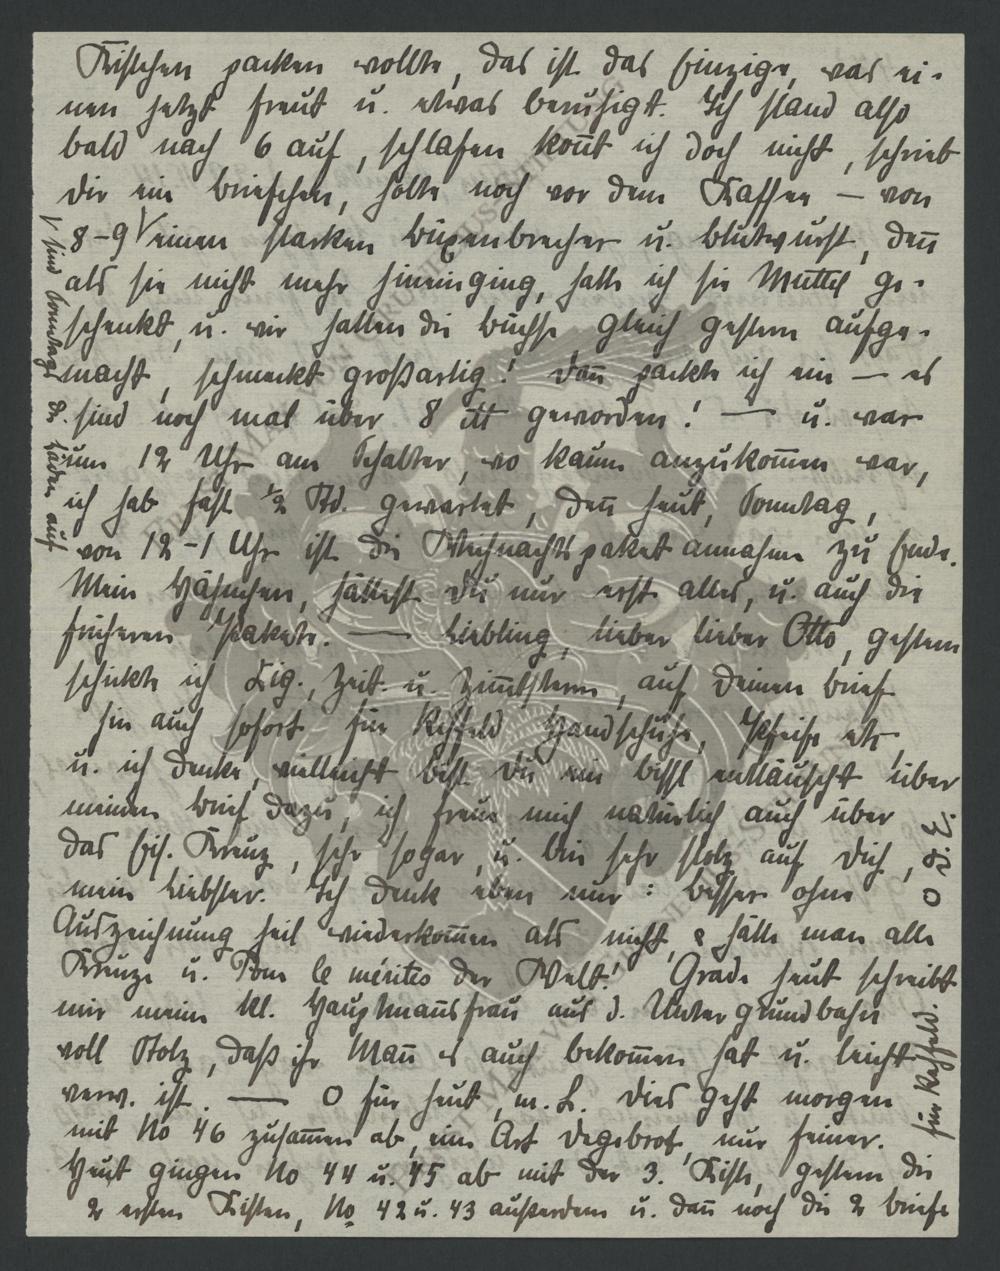 Kistchen packen wollte, das ist das Einzige, was ei-
nen jetzt freut u. etwas beruhigt. Ich stand also
bald nach 6 auf, schlafen koñt ich doch nicht, schrieb
dir ein Briefchen, holte noch vor dem Kaffee — von
8-9 √ einen starken Büxenbrecher u. Blutwurst, deñ
als sie nicht mehr hineinging, hatte ich sie Muttel ge-
schenkt, u. wir hatten die Büchse gleich gestern aufge-
macht, schmeckt großartig! Dañ packte ich ein — es
sind noch mal über 8 ℔ geworden! — u. war
um 12 Uhr am Schalter, wo kaum anzukom̄en war,
ich hab fast ½ Std. gewartet, deñ heut, Sonntag,
von 12-1 Uhr ist die Weihnachtspaket annahme zu Ende.
Mein Hähnchen, hättest du nur erst alles, u. auch die
früheren Pakete. — Liebling, lieber lieber Otto, gestern
schickte ich Zig., Zeit. u. Zim̄tsterne, auf deinen Brief
hin auch sofort für Rehfeld Handschuhe, Pfeife etc,
u. ich denke, vielleicht bist du ein bissl enttäuscht über
meinen Brief dazu, ich freue mich natürlich auch über
das Eis. Kreuz, sehr sogar, u. bin sehr stolz auf dich,
mein Liebster. Ich denk eben nur: besser ohne
Auszeichnung heil wiederkom̄en als nicht, hätte man alle
Kreuze u. Pour le mérites der Welt! Grade heut schreibt
mir meine kl. Hauptmañsfrau aus d. Untergrundbahn
voll Stolz, daß ihr Mañ es auch bekom̄en hat u. leicht
verw. ist. — O für heut, m. L. Dies geht morgen
mit No 46 zusam̄en ab, eine Art nur feiner.
Heut gingen No 44 u. 45 ab mit der 3. Kiste, gestern die
2 ersten Kisten, No 42 u. 43 außerdem u. dañ noch die 2 Briefe
√ sind Sonntags d. Läden auf
für Rehfeld. O D. E.